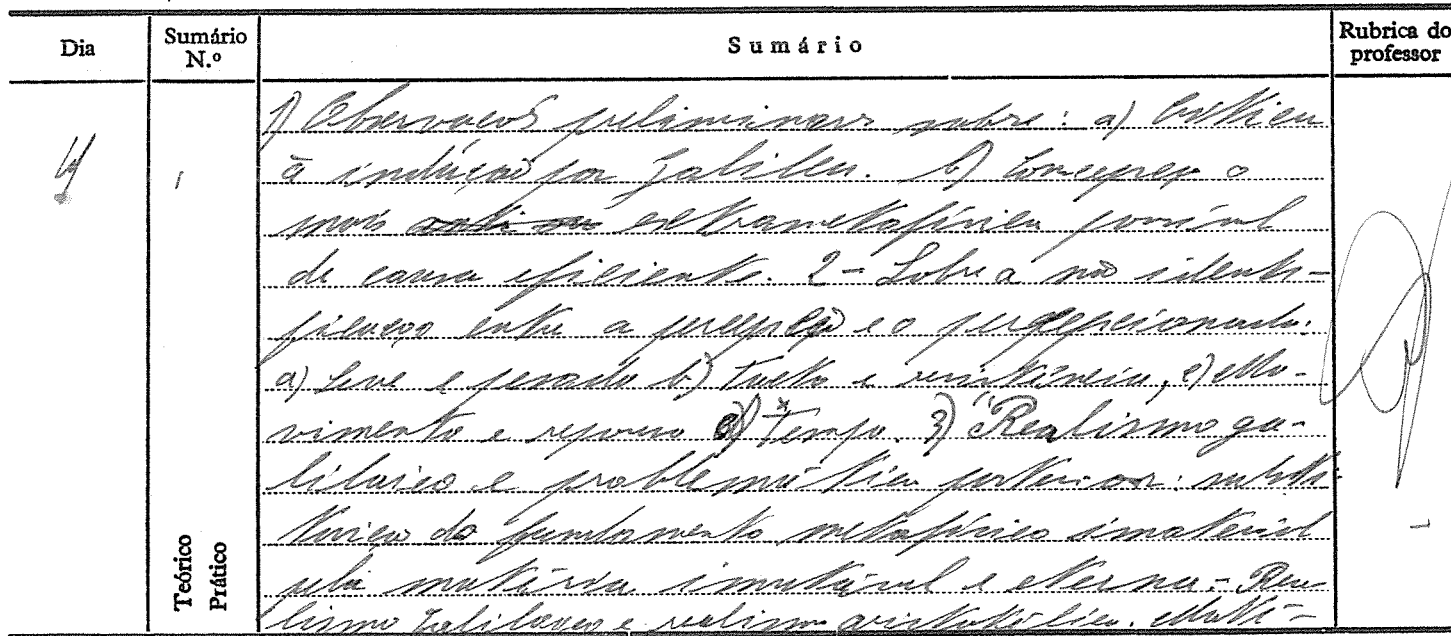 Dia
Sumário N.º
Sumário
Rubrica do professor
4
1
Teórico
Prático
1) Observações preliminares sobre: a) Crítica
à indução por Galileu. b) Concepção o
mais extrametafísica possível
de causa eficiente. 2 - Sobre a não identi-
ficação entre a percepção e o percepcionado.
a) Leve e pesado b) Tacto e resistência, c) Mo-
vimento e repouso d) Tempo. 3) "Realismo ga-
lilaico e problemática posterior: substi-
tuição do fundamento metafísico imaterial
pela matéria imutável e eterna - Rea-
lismo Galilaico e realismo aristotélico. Maté-